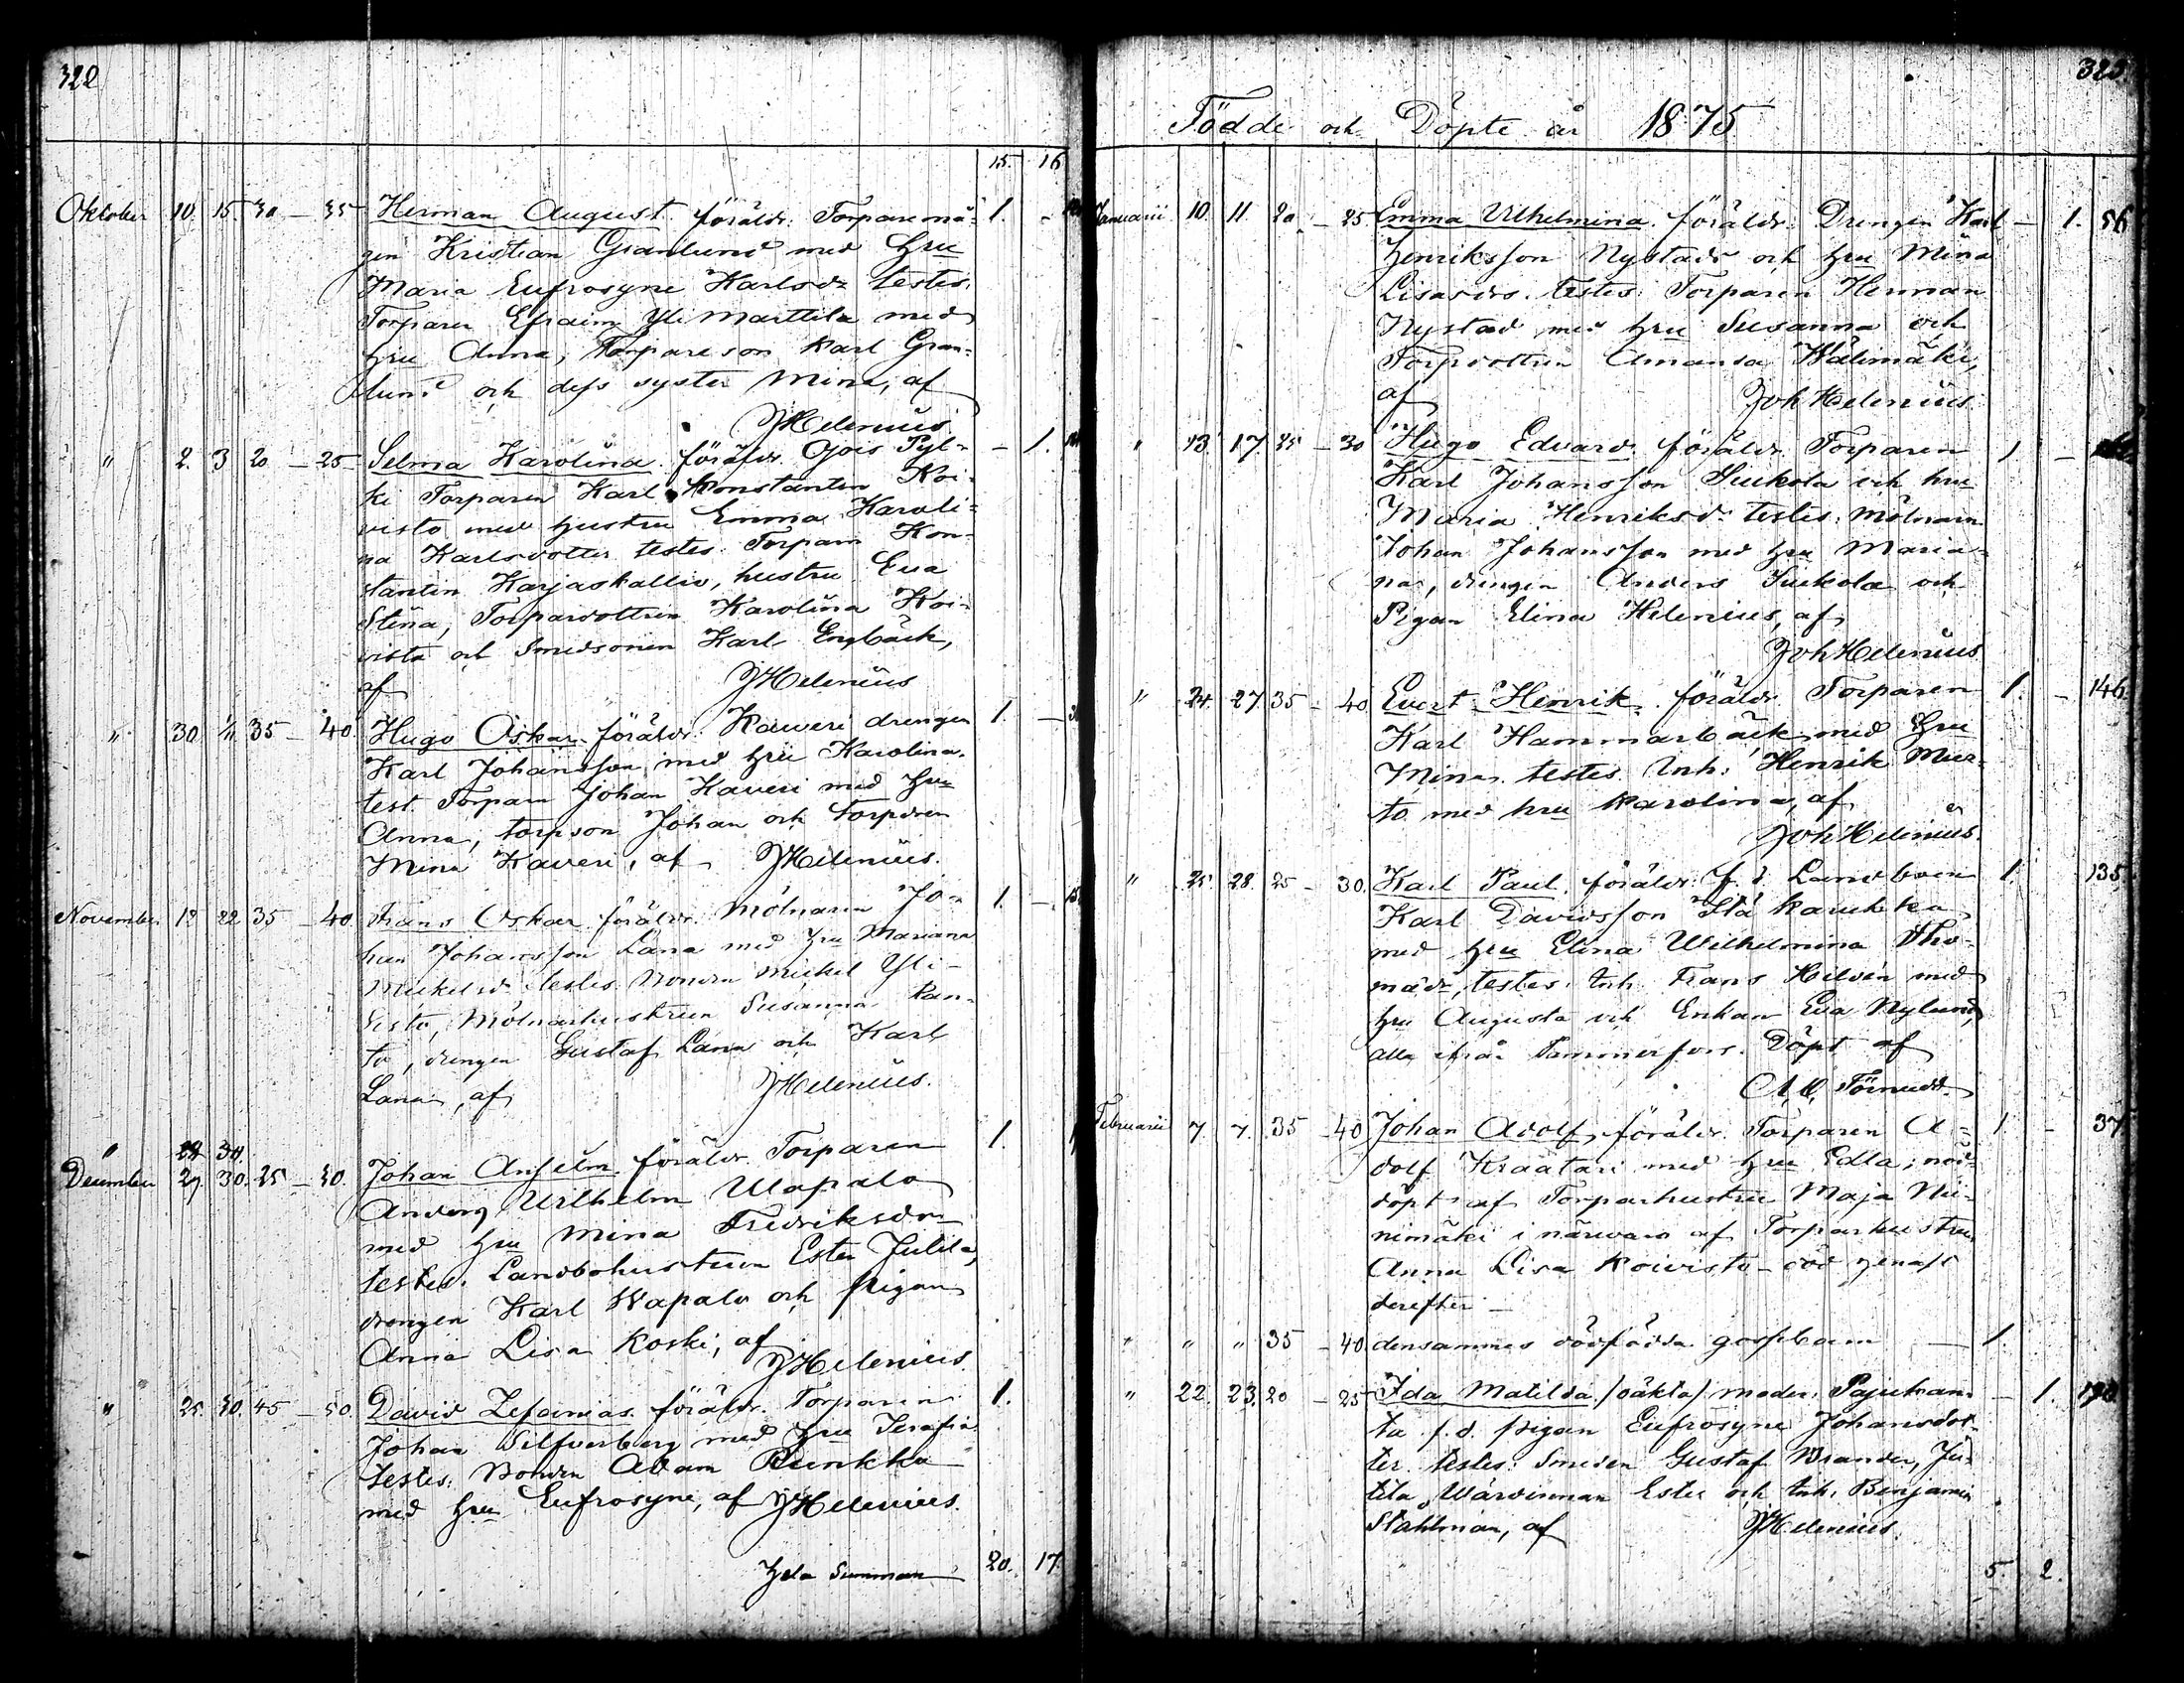 322
15. 16
Oktober 10. 15. 30 — 35 Herman August. föräldr. Torparemå- 1. -
gen Kristian Granlund med Hru
Maria Eufrosyne Karlsdr testes:
Torparen Efraim Yli Marttila med
hru Anna, Torpareson Karl Gran-
lund och dess syster Mina, af
JHelenius.
" 2. 3 20 — 25 Selma Karolina. föräldr. Ojois Pyl- - 1.
ki Torparen Karl Konstantin Koi-
visto med hustru Emma Karoli-
na Karlsdotter testes: Torparn Kon-
stantin Karjaskallio, hustru Eva
Stina, Torpardottren Karolina Koi-
visto och Smedsonen Karl Engbäck,
af JHelenius
" 30. 1/11 35 — 40. Hugo Oskar. föräldr. Kaveri drengen 1. —
Karl Johansson med hru Karolina.
test. Torparn Johan Kaveri med hru
Anna, torpson Johan och torpdren
Mina Kaveri, af JHelenius.
November 12 22 35 — 40. Frans Oskar. föräldr. Mölnaren Jo- 1. —
han Johansson Lana med hru Mariana
Mickelsd. testes: Bonden Mickel Yli-
sisto, Mölnarhustrun Susanna Ran-
to, drengen Gustaf Lana och Karl
Lana, af JHelenius.
" 28 30
December 27 30. 25 — 30. Johan Anselm. föräldr. Torparen 1.
Anders Wilhelm Wapalo
med hru Mina Fredriksdr
testes: Landbohustrun Ester Jutila,
drengen Karl Wapalo och pigan
Anna Lisa Koski, af
JHelenius.
" 25. 30. 45 — 50. David Zefanias. föräldr. Torparen 1.
Johan Silfverberg med hru Serafia
testes: Bonden Adam Runkka
med hru Eufrosyne, af JHelenius.
Hela Summan 20. 17.
323
Födde och Döpte år 1875
Januarii 10. 11. 20 — 25 Emma Vilhelmina. föräldr. Drengen Karl — 1. 56
Henriksson Nystads och hru Mina
Lisasdr. testes: Torparen Herman
Nystad med hru Susanna och
Torpdottren Amanda Wälimäki,
af Joh Helenius
" 13 17. 25 — 30 Hugo Edvard. föräldr. Torparen 1 —
Karl Johansson Suckola och hru
Maria Henriksdr testes: Mölnarn
Johan Johansson med hru Maria-
na, drengen Anders Suckola och
Pigan Elina Helenius, af
Joh Helenius
" 24. 27. 35 — 40 Evert Henrik. föräldr. Torparen 1. — 146
Karl Hammarbäck med hru
Mina. testes: Inh. Henrik Mur-
to med hru Karolina, af
Joh Helenius.
" 25. 28. 25 — 30. Karl Paul. föräldr. f. d. Landboen 1. 135
Karl Davidsson Isla kaukkea
med hru Elina Wilhelmina Tho-
madr, testes: Inh. Frans Hildén med
hru Augusta och Enkan Eva Nylund,
alla ifrån Tammerfors. Döpt af
A. M. Törnudd.
Februarii 7. 7. 35 — 40 Johan Adolf, föräldr. Torparen A- 1 — 37
dolf Kraatari med hru Edla; nöd-
döpt af Torparhustru Maja Nii-
nimäki i närvaro af Torparhustrun
Anna Lisa Koivisto — död genast
derefter —
" " " 35 — 40 densammes dödfödda gossebarn — 1.
" 22. 23. 20 — 25 Ida Matilda /oäkta/ moder: Pajukan- — 1. 190
ta f. d. pigan Eufrosyne Johansdot-
ter. testes: Smeden Gustaf Brander, Ju-
tila Wärdinnan Ester och Inh. Benjamin
Stahlman, af JHelenius.
5. 2.